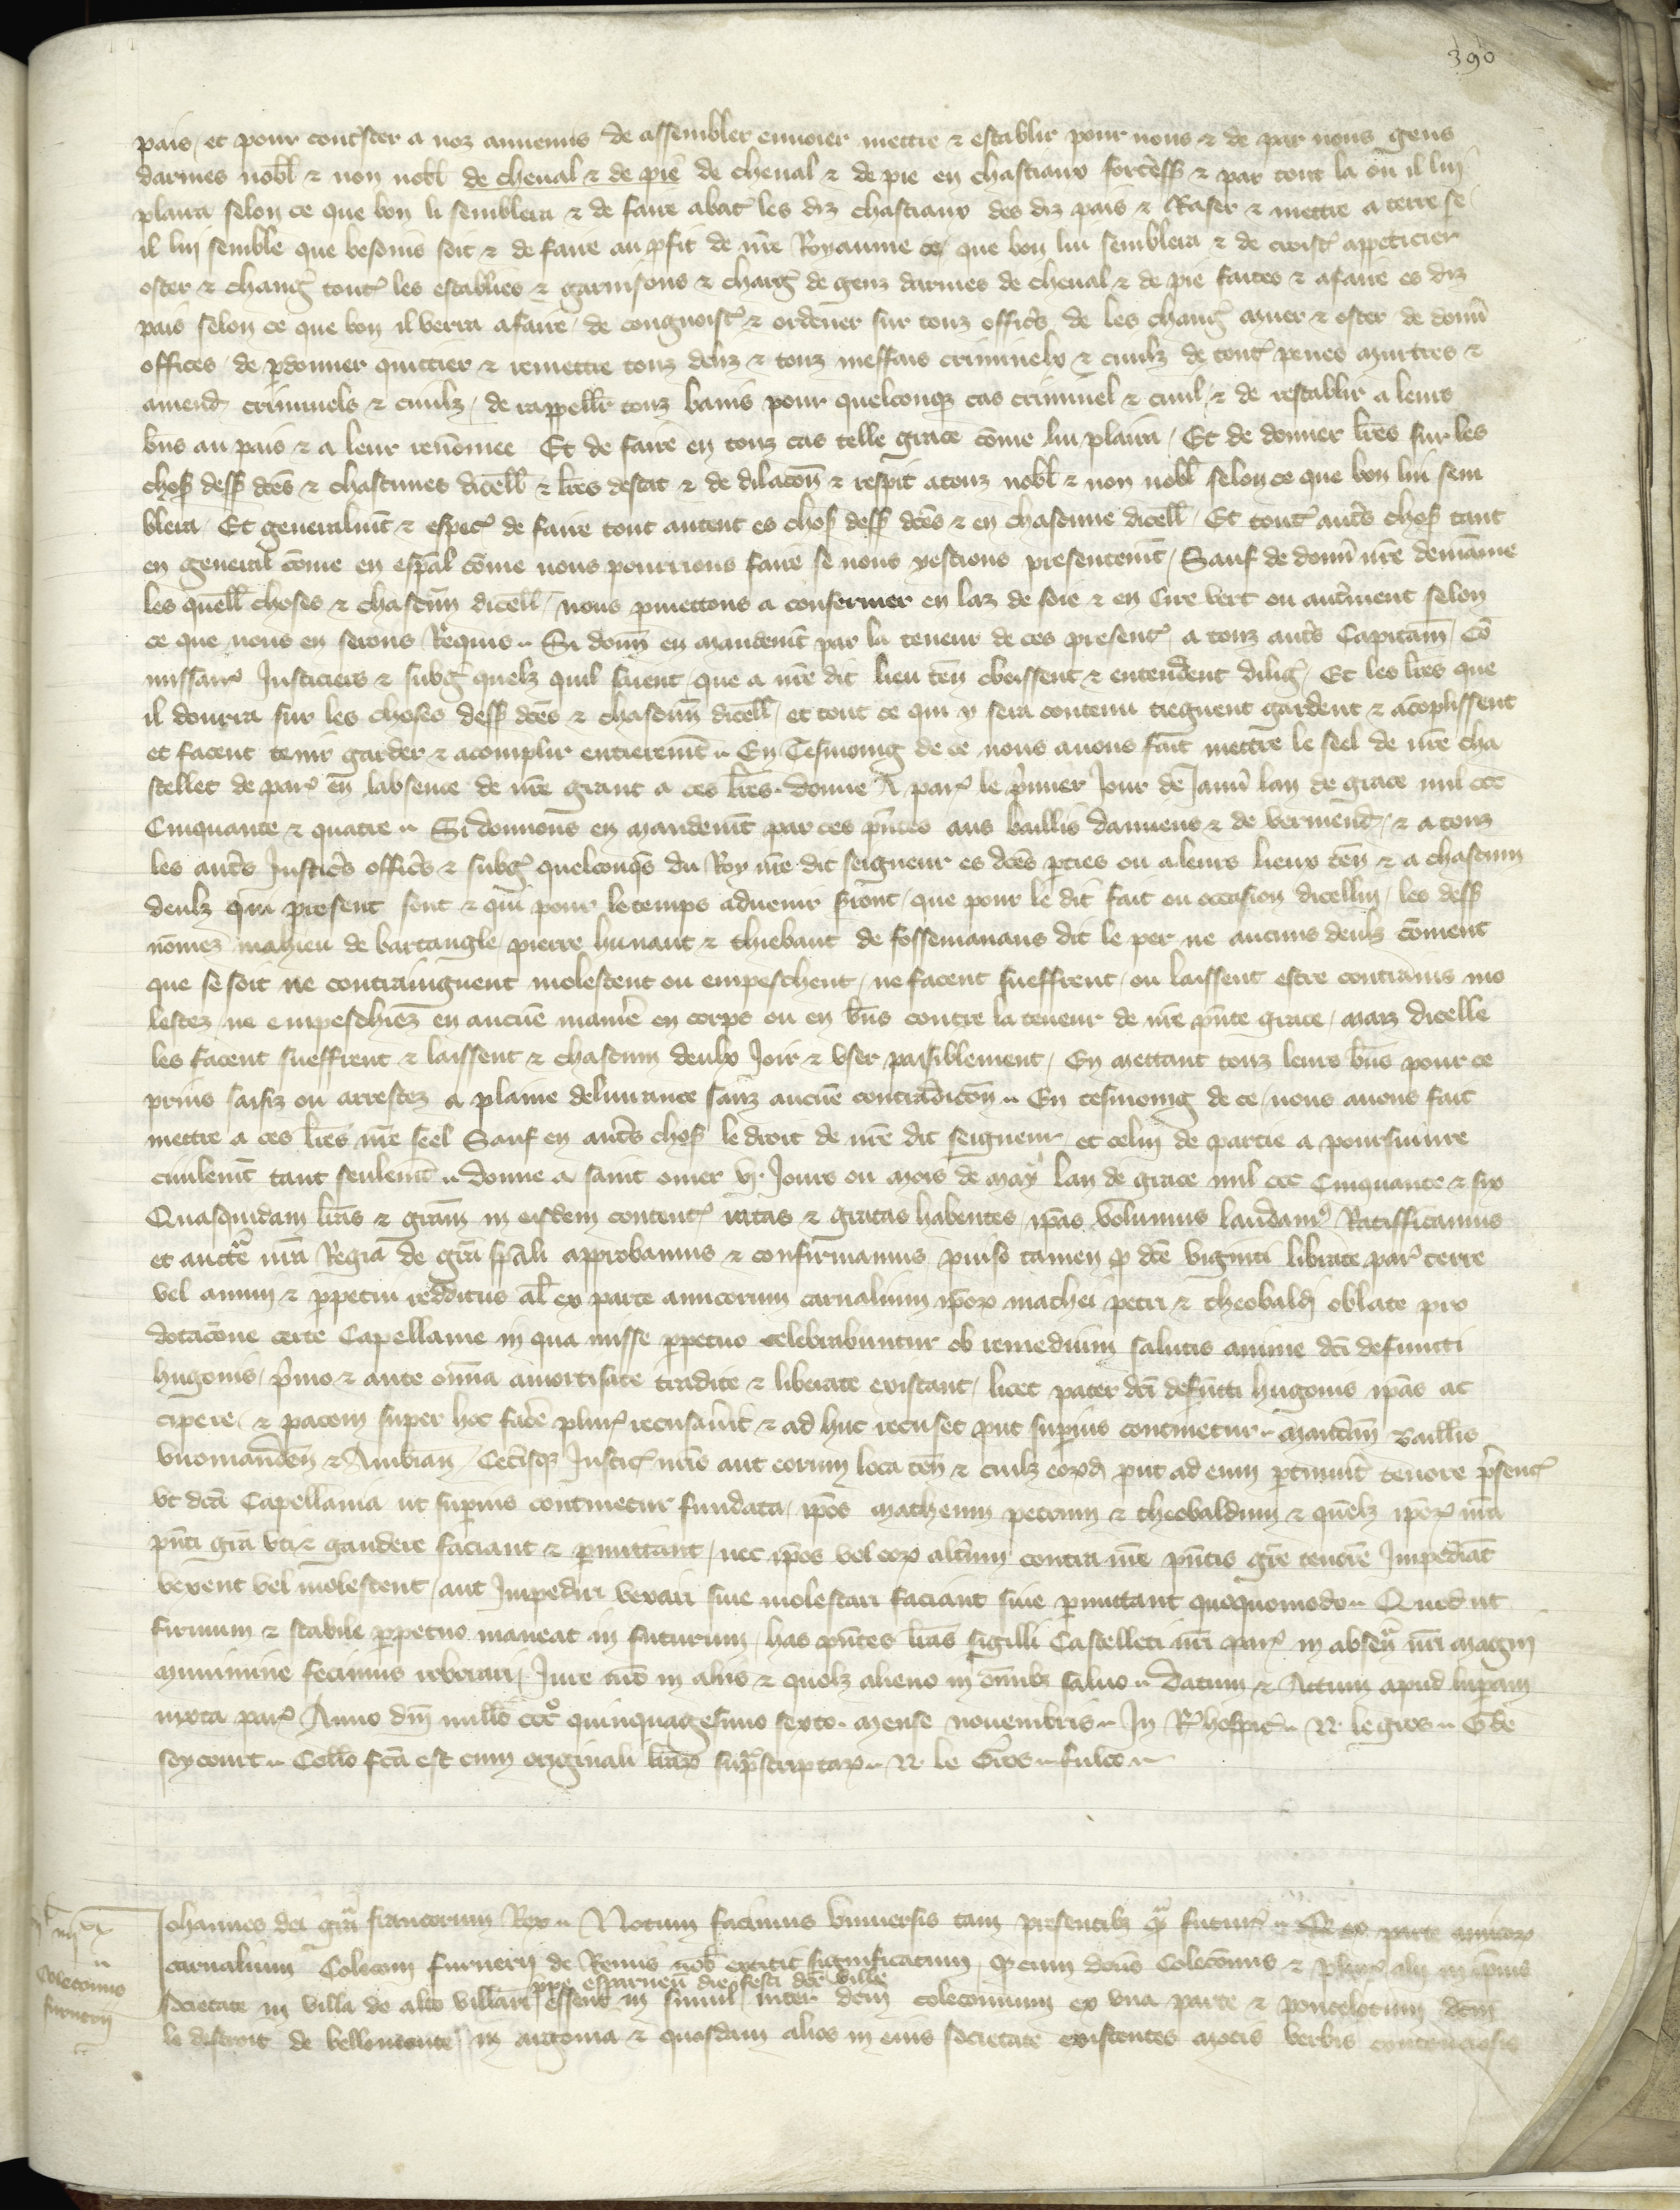 390
pais et pour cont'ster a noz annemis de assembler envoier mettre & establir pour nous & de par nous gens
darmes nobl & non nobl de cheval & de pie de cheval & de pie en chastiaux forteress & par tout la ou il lui
plaira selon ce que bon li semblera & de faire abat' les diz chastiaux des diz pais & Raser & mettre a terre se
il lui semble que besoins soit & de faire au pfit de nre Royaume ce que bon lui semblera & de croist' appeticier
oster & chang' tout' les establies & garnisons & charg' de genz darmes de cheval & de pie faites & afaire es diz
pais selon ce que bon il verra afaire de congnoist' & ordener sur touz offics de les chang' muer & oster de donn'
offices de pdonner quittier & remettre touz deliz & touz meffais criminelx & civilz de tout' penes murtres &
amend' criminels & civilz de rappeller touz banis pour quelconq cas criminel & civil & de restablir a leurs
bns au pais & a leur renomee Et de faire en touz cas telle grace come lui plaira Et de donner lres sur les
chos dess dces & chascunes dicell & lres destat & de dilacon & respit atouz nobl & non nobl selon ce que bon lui sem
blera Et generalmt & espec' de faire tout autent es chos dess dces & en chascune dicell Et tout' autrs chos tant
en general come en espal come nous pourrions faire se nous yestions presentemt Sauf de donn' nre demaine
les quell choses & chascun dicell nous pmettons a confermer en laz de soie & en Cire vert ou autrement selon
ce que nous en serons Requis Si donn en mandemt par la teneur de ces present' a touz autrs Capitain Co
missair' Justiciers & subg' quelz quil soient que a nre dit lieu ten obeissent & entendent dilig' Et les lres que
il donrra sur les choses dess dces & chascun dicell et tout ce qui y sera contenu tiegnent gardent & acoplissent
et facent tenir garder & acomplir entieremt En Tesmoing de ce nous avons fait mettre le seel de nre cha
stellet de par' en labsence de nre grant a ces lres donne A par' le primier Jour de Janv' lan de grace mil ccc
Cinquante & quatre Si donnons en mandemt par ces pntes aus baillis damiens & de vermend' & a touz
les autrs Justicrs offics & subg' quelconqs du Roy nre dit seigneur es dces pties ou aleurs lieux ten & a chascun
deulz qui present sont & qui pour le temps advenir sront que pour le dit fait ou occasion dicellui les dess
nomez mahieu de bartangle pierre hunaut & thiebaut de fossemanaus dit le per ne aucuns deulz coment
que se soit ne contraingnent molestent ou empeschent ne facent sueffrent ou laissent estre contrains mo
lestez ne empeschiez en aucune maniere en corps ou en bns contre la teneur de nre pnte grace maiz dicelle
les facent sueffrent & laissent & chascun deulx Joir & user paisiblement En mettant touz leurs bns pour ce
prins saisiz ou arrestez a plaine delivrance sanz aucune contradicon En tesmoing de ce nous avons fait
mettre a ces lres nre seel Sauf en autrs chos le droit de nre dit seigneur et celui de partie a poursuivre
civilemt tant seulemt donne a saint omer vj Jours ou mois de may lan de grace mil ccc Cinquante & six
Quasquidam lras & gram in eisdem content' ratas & gratas habentes ipas volumus laudam' Ratifficamus
et auctte nra Regia de gra spali approbamus & confirmamus proviso tamen q dce viginti librate par' terre
vel annui & ppetui redditus al ex parte amicorum carnalium ipor mathei petri & theobaldi oblate pro
dotacone certe Capellanie in qua misse ppetuo celebrabuntur ob remedium salutis anime dci defuncti
hugonis primo & ante omnia amortisate tradite & liberate existant licet pater dci defuncti hugonis ipas ac
cipere & pacem super hoc face plur' recusavit & ad huc recuset put supius continetur mandam Baillis
viromanden & Ambian Cetisq Justic' nris aut eorum loca ten & cuilz eord put ad eum ptinuit tenore psent'
ut dca Capellania ut supius continetur fundata ipos matheum petrum & theobaldum & quelz ipor' nra
pnti gra uti & gaudere faciant & pmittant nec ipos vel eor altum contra nre pntis gre tenore Impediat
vexent vel molestent aut Impediri vexari sive molestari faciant sive pmittant quoquomodo Quod ut
firmum & stabile ppetuo maneat in futurum has pntes lras sigilli Castelleti nri par' in absen' nri magni
munimine fecimus roborari Jure nro in aliis & quolz alieno in omnibz salvo Datum & Actum apud luparam
iuxta par' Anno dni millo ccc quinquagesimo sexto mense novembris In R' hospic' N. le gros G de
seycourt Collo fca est cum originali lrar suprascriptar N. le Gros fulco
Colecomo
furnerii
Johannes dei gra francorum Rex Notum facimus universis tam presentibz q futur' Q ex parte amicor
carnalium Colecom furnerii de Remis nob extitit significatum Q cum dcus Colecomus & plures alii in ipius
ppe espernen die festi dce ville
societate in villa de alto villari essent in simul inter dcm colecomum ex una parte & poncelotum dcm
le destroit de bellomonte in argonia & quosdam alios in eius societate existentes motis verbis contenciosis